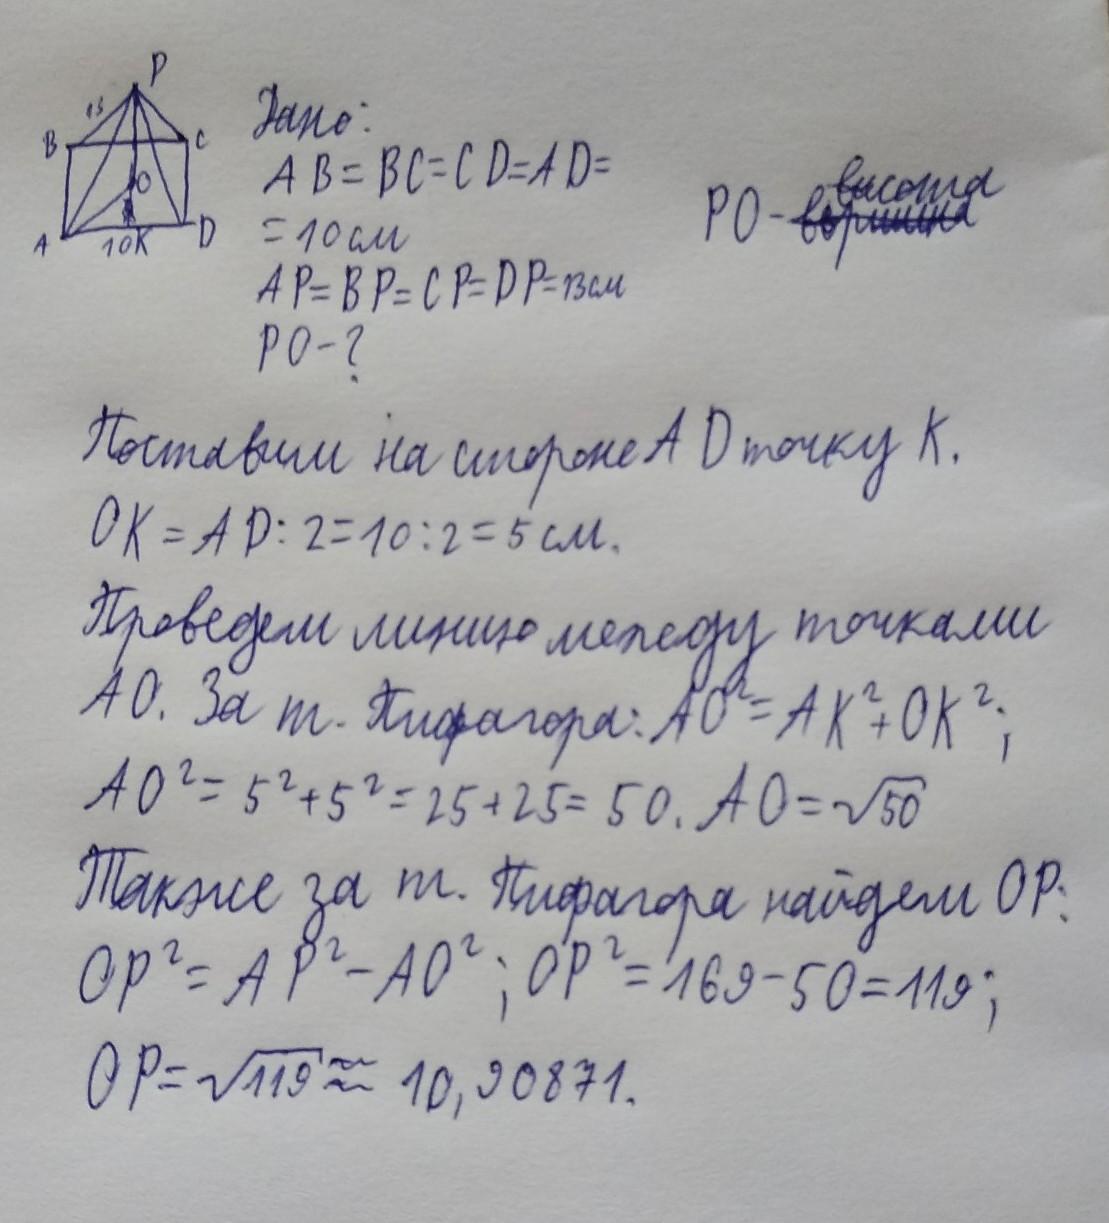 P
13
B
C
O
A
10
K
D
Дано:
AB=BC=CD=AD=
=10см
AP=BP=CP=DP=13см
PO-?
PO- высота
Поставим на стороне AD точку K.
OK=AD:2=10:2=5см.
Проведем линию между точками
AO. За т. Пифагора: AO²=AK²+OK²;
AO²=5²+5²=25+25=50. AO=√50
Также за т. Пифагора найдем OP:
OP²=AP²-AO²; OP²=169-50=119;
OP=√119≈10,90871.